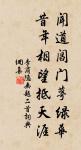 闻道阊门萼绿华
昔年相望抵天涯
李商隐无题二首词典
网集